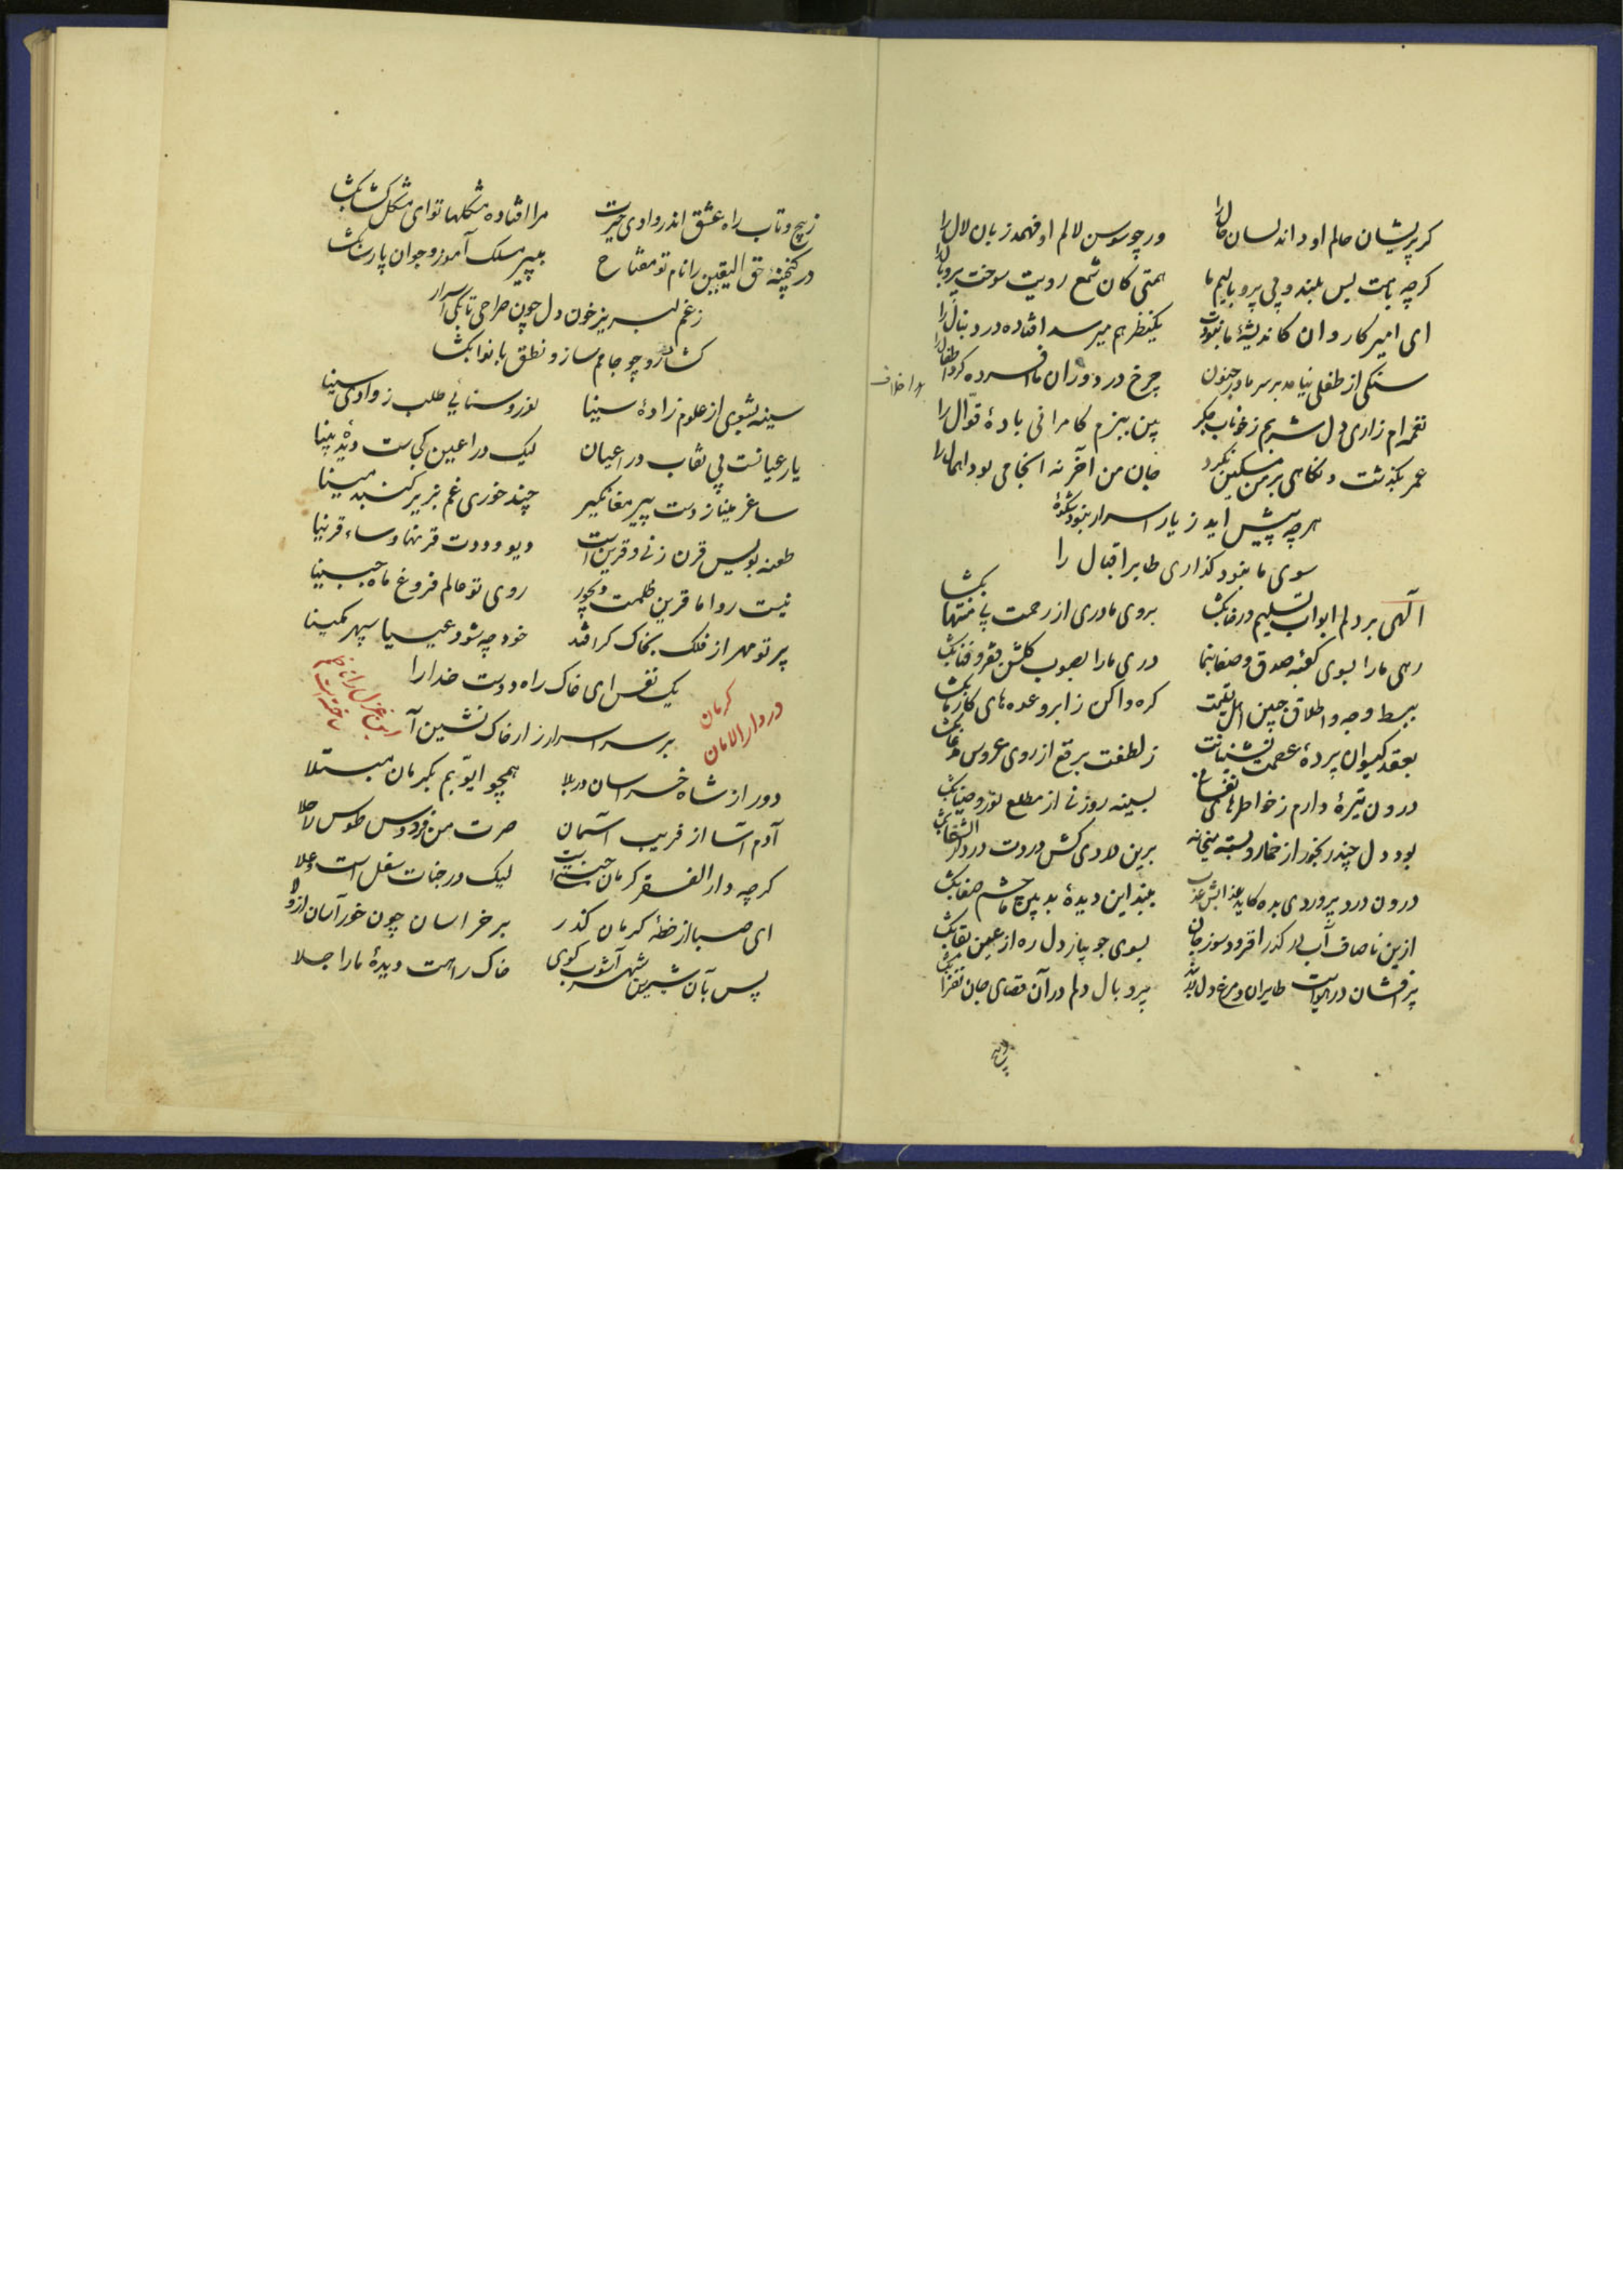 کر پریشان حالم او داند لسان حال را
ور چو سوسن لالم او فهمد زبان لال را
کرچه بامت بس بلند و بی پر و بالیم ما
همتی کان شمع رویت سوخت پر و بال را
ای امیر کاروان کاندیشهٔ ما نبودت
یکنظر هم میرسد افتاده در دنبال را
سنکی از طفلی نیامد بر سر ما در جنون
چرخ در دوران ما افسرده کرد اطفال را
نغمه ام زاری دل شربم ز خوناب جکر
بین ببزم کامرانی بادهٔ قوال را
عمر بکذشت و نکاهی بر من مسکین نکرد
جان من آخر نه انجامی بود اهمال را
هرچه پیش اید ز یار اسرار نبود شکوهٔ
سوی ما نبود کذاری طایر اقبال را
الهی بر دلم ابواب تسلیم و رضا بکشا
بروی ما دری از رحمت بی منتها بکشا
رهی ما را بسوی کعبهٔ صدق و صفا بنما
دری ما را بصوب کلشن فقر و فنا بکشا
ببسط وجه و اطلاق جبین اهل تسلیمت
کره واکن ز ابرو عده های کار ما بکشا
بعقد کیسوان پردهٔ عصمت نشینانت
ز لطفت برقع از روی عروس مدعا بکشا
درون تیرهٔ دارم ز خواطرهای نفسانی
بسینه روزنی از مطلع نور و ضیا بکشا
بود دل چند رنجور از خمار و بسته میخانه
برین دردی کش دردت در دار الشفا بکشا
درون درد پروردی بده کاید عذابش عذب
ببند این دیدهٔ بد بین ما چشم صفا بکشا
ازین ناصاف آب در کذر افزود سوز جان
بسوی جوبباز دل ره از عین بقا بکشا
پر افشان در هوایت طایران و مرغ دل دربند
پر و بال دلم در آن فضای جان فزا بکشا
ز پیچ و تاب راه عشق اندر وادی حیرت
مرا افتاده مشکلها تو ای مشکل کشا بکشا
در کنجینهٔ حق الیقین را نام تو مفتاح
ببپیر مسلک آموز و جوان پارسا بکشا
ز غم لبریز خون دل چون صراحی تا بکی اسرار
کشاده رو چو جامم ساز و نطق با نوا بکشا
سینه بشوی از علوم زادهٔ سینا
نور و سنایی طلب ز وادی سینا
یار عیانست بی نقاب در اعیان
لیک در اعین کجاست دیدهٔ بینا
ساغر مینا ز دست پیر مغان کیر
چند خوری غم بزیر کنبد مینا
طعنه بویس قرن زنی و قرین است
دیو و ددت قرنها و ساء قرینا
نیست روا ما قرین ظلمت دیجور
روی تو عالم فروغ ماه جبینا
پرتو مهر از فلک بخاک کر افتد
خود چه شود عیسیا سپهر مکینا
یک نفس ای خاک راه دوست خدا را
بر سر اسرار زار خاک نشین آ
در دار الامان کرمان
این غزل را نظم ساخته است
دور از شاه خراسان در بلا
همچو ایوبم بکرمان مبتلا
آدم آسا از فریب آسمان
صرت من فردوس طوس راحلا
کرچه دار الفقر کرمان جنت است
لیک در جنات سفل است و علا
ای صبا از خطهٔ کرمان کذر
بر خراسان چون خور آسان از ولا
پس بآن شیرین شهر آشوب کوی
خاک راهت دیدهٔ ما را جلا